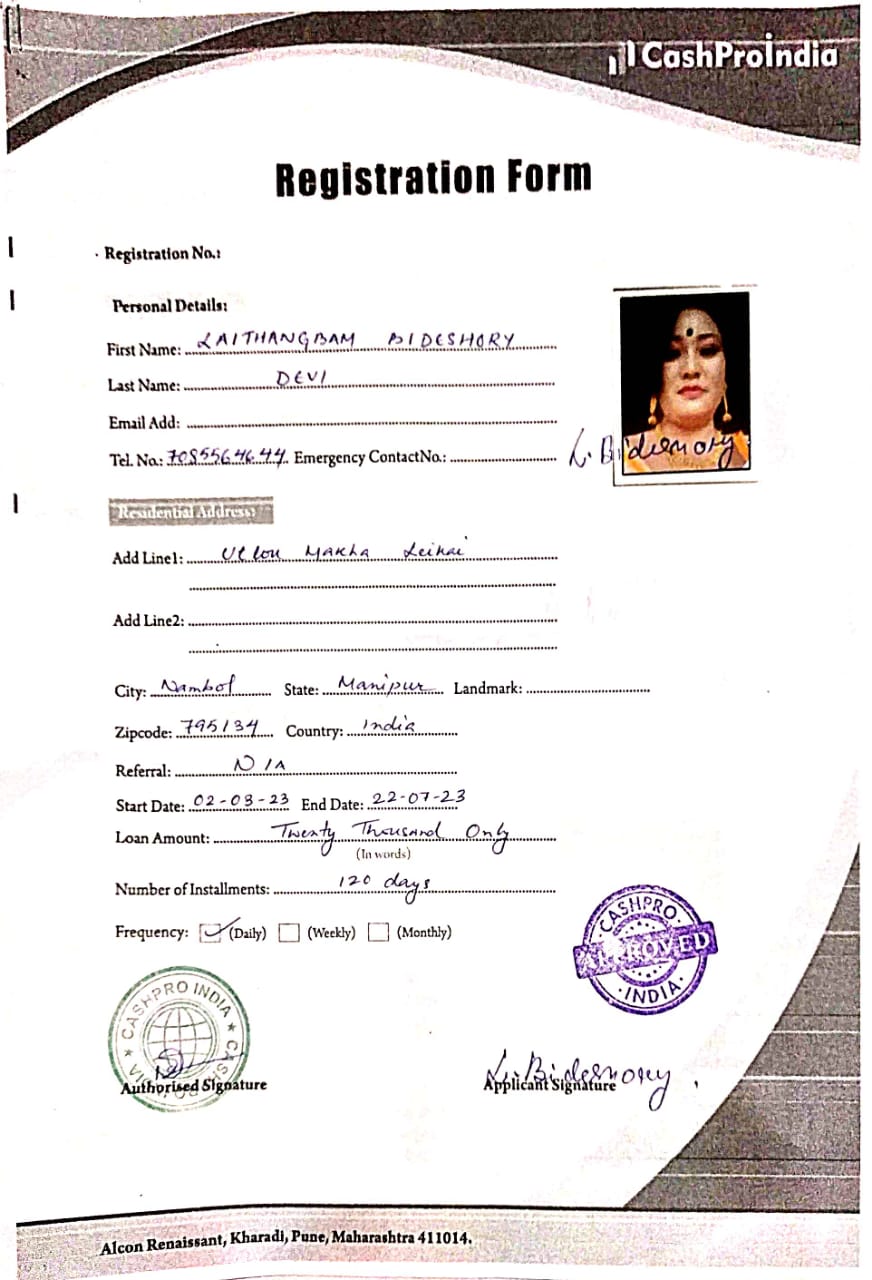 CashProIndia
Registration Form
Registration No.:
Personal Details:
First Name: LAITHANGBAM BIDESHORY
Last Name: DEVI
Email Add:
Tel. No.: 7085564644 Emergency ContactNo.:
L. Bideshory
Residential Address:
Add Line1: Makha Leikai
Add Line2:
City: Nambol State: Manipur Landmark:
Zipcode: 795134 Country: India
Referral: N/A
Start Date: 02-03-23 End Date: 22-07-23
Loan Amount: Twenty Thousand Only
(In words)
Number of Installments: 120 days
Frequency: (Daily) (Weekly) (Monthly)
CASHPRO
APPROVED
INDIA
CASHPRO INDIA
Authorised Signature
L. Bideshory
Applicant Signature
Alcon Renaissant, Kharadi, Pune, Maharashtra 411014.